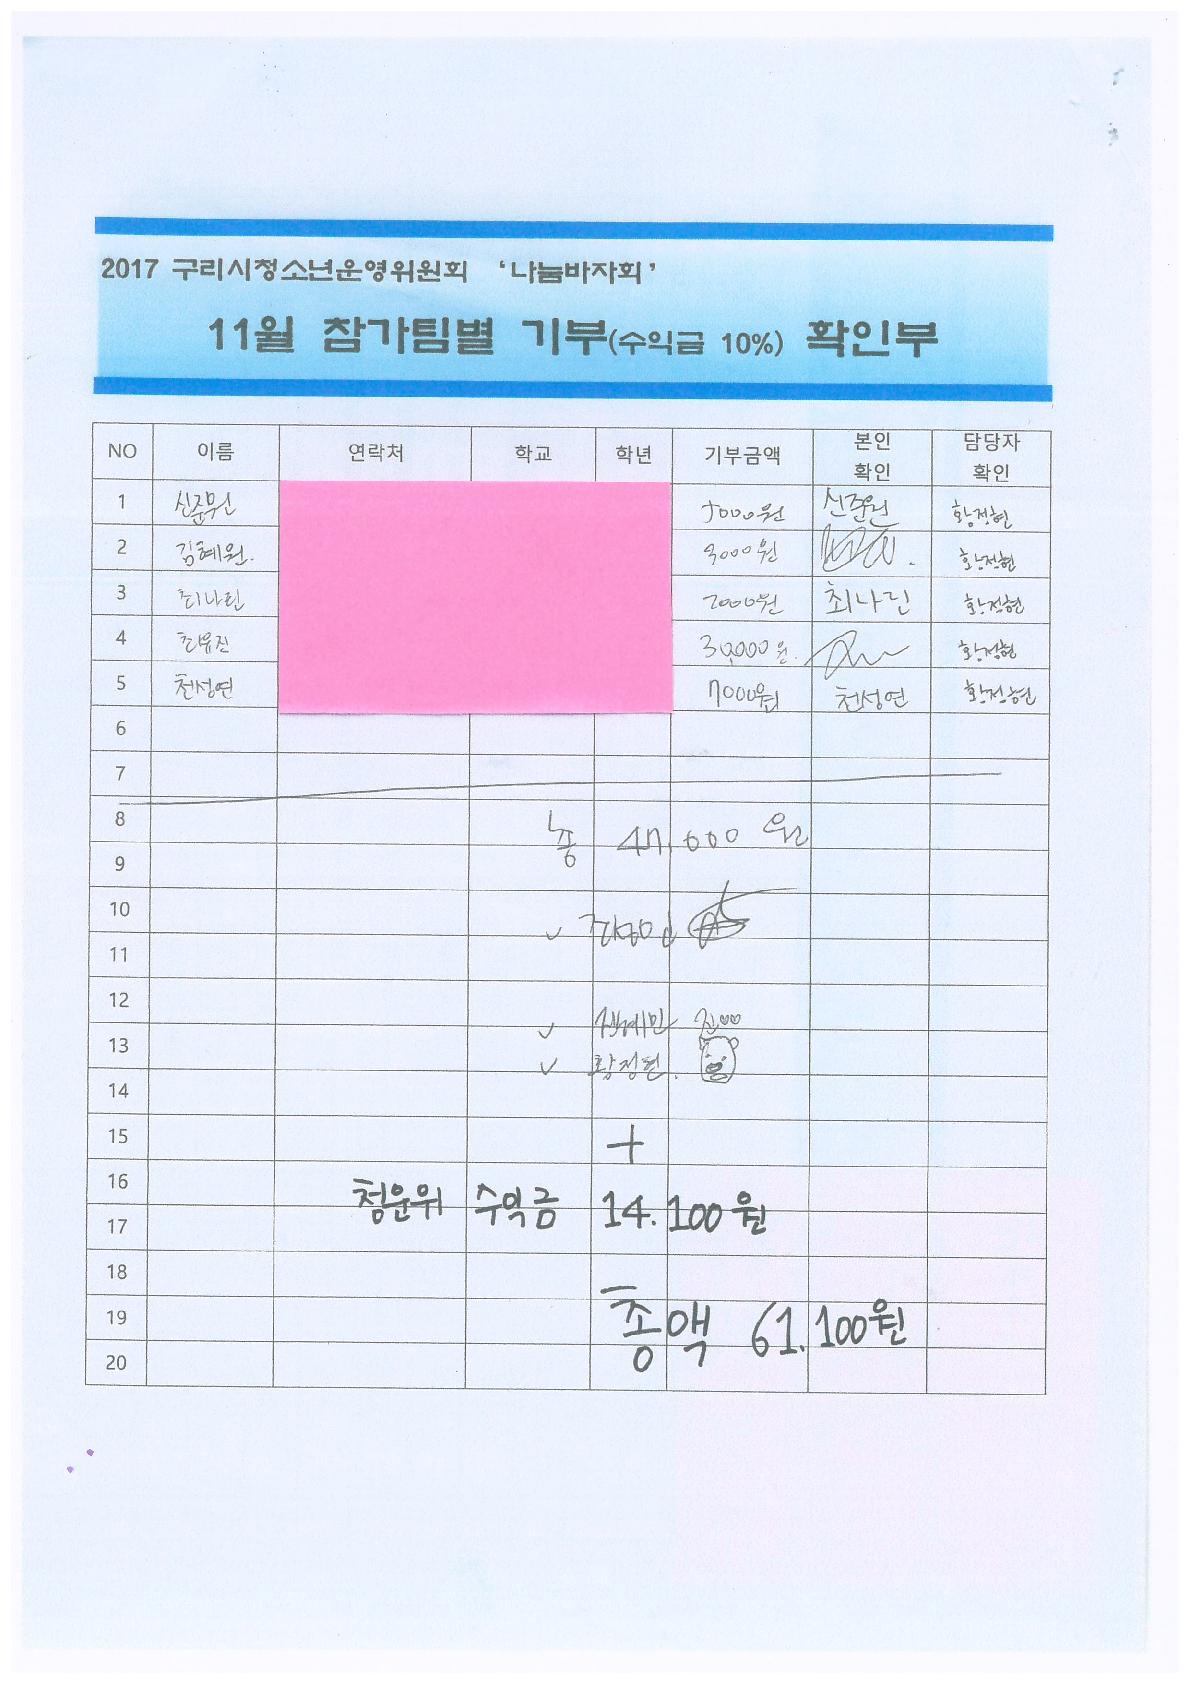 2017 구리시청소년운영위원회 ‘나눔바자회’
11월 참가팀별 기부(수익금 10%) 확인부
NO 이름 연락처 학교 학년 기부금액 본인 확인 담당자 확인
1 신준원 5000원 신준원 황정현
2 김혜원. 3000원 황정현
3 최나린 2000원 최나린 황정현
4 최유진 30,000원. 황정현
5 천성연 7000원 천성연 황정현
6
7
8
총 47,000원
9
10
11
12
13
황정현.
14
15
+
16
청운위 수익금 14.100원
17
18
19
총액 61.100원
20